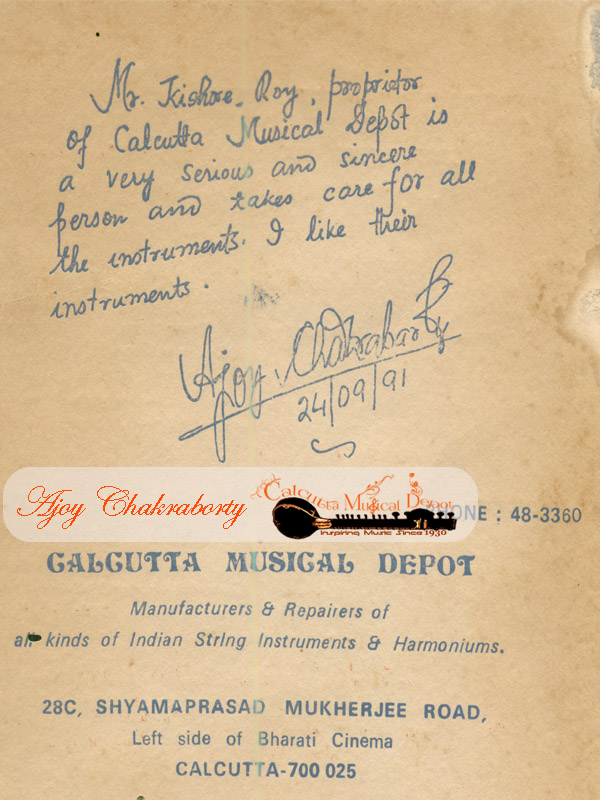 Mr. Kishore Roy, proprietor
of Calcutta Musical Depot is
a very serious and sincere
person and takes care for all
the instruments. I like their
instruments.
Ajoy Chakrabarty
24/09/91
Ajoy Chakraborty
Calcutta Musical Depot
Inspiring Music Since 1930
ONE : 48-3360
CALCUTTA MUSICAL DEPOT
Manufacturers & Repairers of
all kinds of Indian String Instruments & Harmoniums.
28C, SHYAMAPRASAD MUKHERJEE ROAD,
Left side of Bharati Cinema
CALCUTTA-700 025